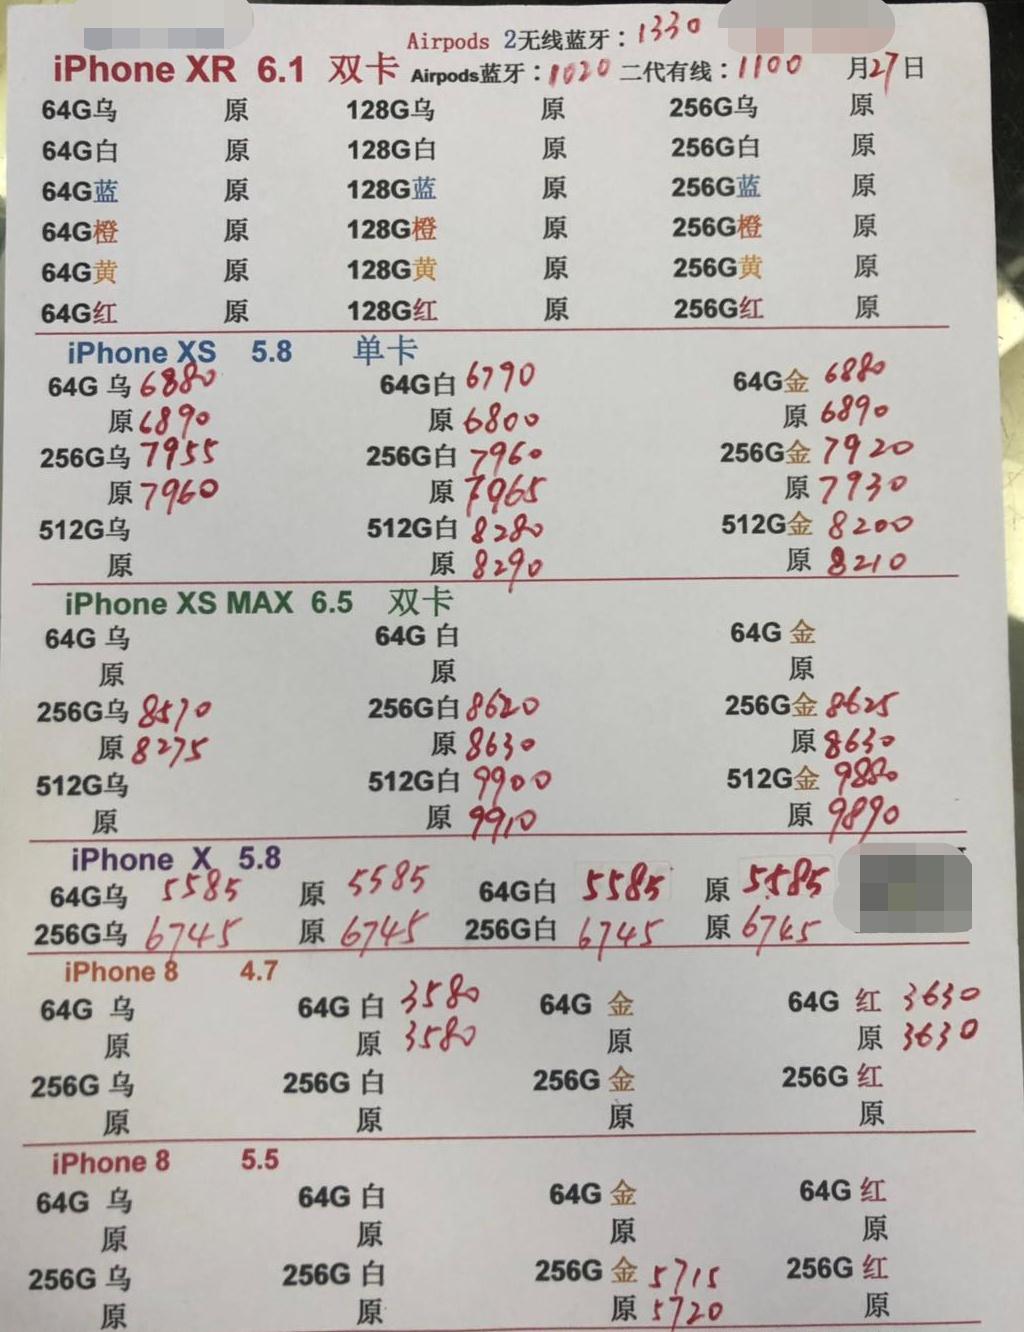 Airpods 2无线蓝牙：1330
iPhone XR 6.1 双卡 Airpods蓝牙：1020 二代有线：1100 月27日
64G乌 原 128G乌 原 256G乌 原
64G白 原 128G白 原 256G白 原
64G蓝 原 128G蓝 原 256G蓝 原
64G橙 原 128G橙 原 256G橙 原
64G黄 原 128G黄 原 256G黄 原
64G红 原 128G红 原 256G红 原
iPhone XS 5.8 单卡
64G 乌 6880 64G白 6790 64G金 6880
原 6890 原 6800 原 6890
256G乌 7955 256G白 7960 256G金 7920
原 7960 原 7965 原 7930
512G乌 512G白 8280 512G金 8200
原 原 8290 原 8210
iPhone XS MAX 6.5 双卡
64G 乌 64G 白 64G 金
原 原 原
256G乌 8570 256G白 8620 256G金 8625
原 8275 原 8630 原 8630
512G乌 512G白 9900 512G金 9880
原 原 9910 原 9890
iPhone X 5.8
64G乌 5585 原 5585 64G白 5585 原 5585
256G乌 6745 原 6745 256G白 6745 原 6745
iPhone 8 4.7
64G 乌 64G 白 3580 64G 金 64G 红 3630
原 原 3580 原 原 3630
256G 乌 256G 白 256G 金 256G 红
原 原 原 原
iPhone 8 5.5
64G 乌 64G 白 64G 金 64G 红
原 原 原 原
256G 乌 256G 白 256G 金 5715 256G 红
原 原 原 5720 原